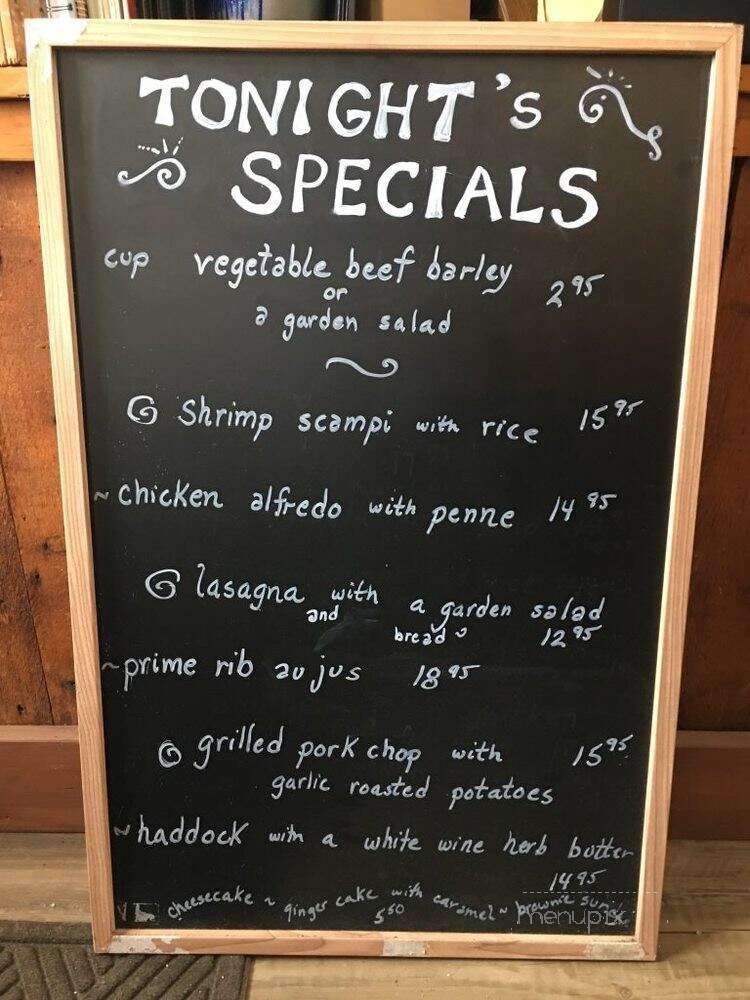 TONIGHT's
SPECIALS
cup vegetable beef barley 2 95
or
a garden salad
Shrimp scampi with rice 15 95
~ chicken alfredo with penne 14 95
lasagna with a garden salad
and bread 12 95
~ prime rib au jus 18 95
grilled pork chop with 15 95
garlic roasted potatoes
~ haddock with a white wine herb butter
14 95
cheesecake ~ ginger cake with caramel ~ brownie
5 50
menupix